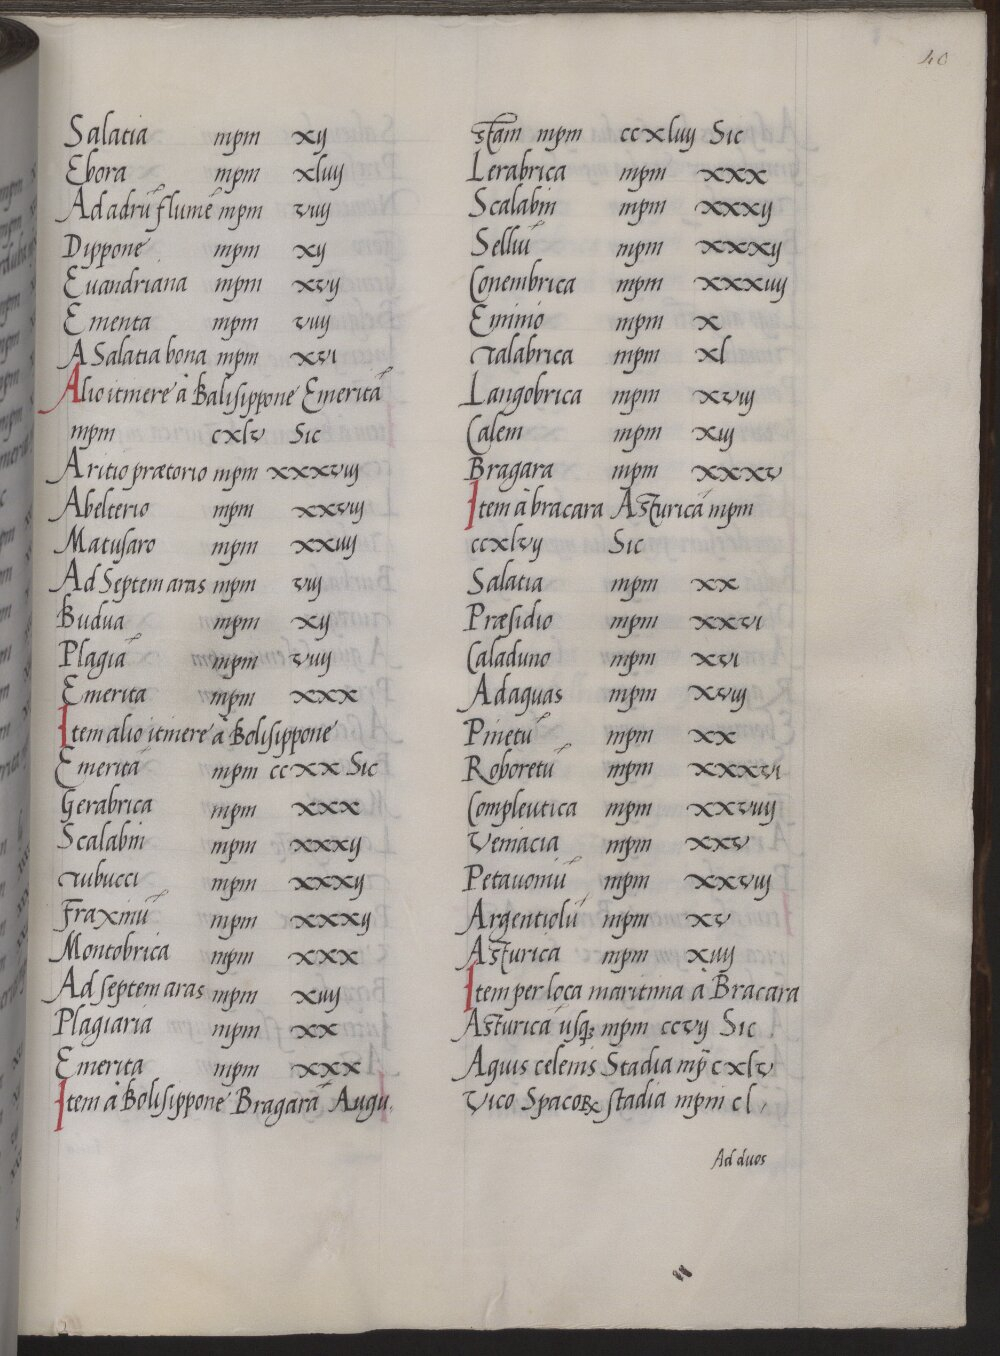 40
Salatia mpm xij
Ebora mpm xluij
Ad adrū flumē mpm viiij
Dippone mpm xij
Euandriana mpm xvij
Ementa mpm viiij
A Salatia bona mpm xvi
Alio itinere à Balisippone Emeritā
mpm cxlv Sic
Aritio prætorio mpm xxxviij
Abelterio mpm xxviij
Matusaro mpm xxiiij
Ad Septem aras mpm viij
Budua mpm xij
Plagiā mpm viiij
Emerita mpm xxx
Item alio itinere à Bolisippone
Emeritā mpm ccxx Sic
Gerabrica mpm xxx
Scalabin mpm xxxij
Tubucci mpm xxxij
Fraxinū mpm xxxij
Montobrica mpm xxx
Ad septem aras mpm xiiij
Plagiaria mpm xx
Emerita mpm xxx
Item à Bolisippone Bragarā Augu,
stam mpm ccxluij Sic
Ierabrica mpm xxx
Scalabin mpm xxxij
Selliū mpm xxxij
Conembrica mpm xxxiiij
Eminio mpm x
Talabrica mpm xl
Langobrica mpm xviij
Calem mpm xiij
Bragara mpm xxxv
Item à bracara Asturicā mpm
ccxlvij Sic
Salatia mpm xx
Præsidio mpm xxvi
Caladuno mpm xvi
Adaquas mpm xviij
Pinetū mpm xx
Roboretū mpm xxxvi
Compleutica mpm xxviiij
Veniacia mpm xxv
Petauoniū mpm xxviij
Argentiolū mpm xv
Asturica mpm xiiij
Item per loca maritima à Bracara
Asturicā usq; mpm ccvij Sic
Aquis celenis Stadia mp̄ cxlv
Vico Spacoꝝ stadia mpm cl,
Ad duos